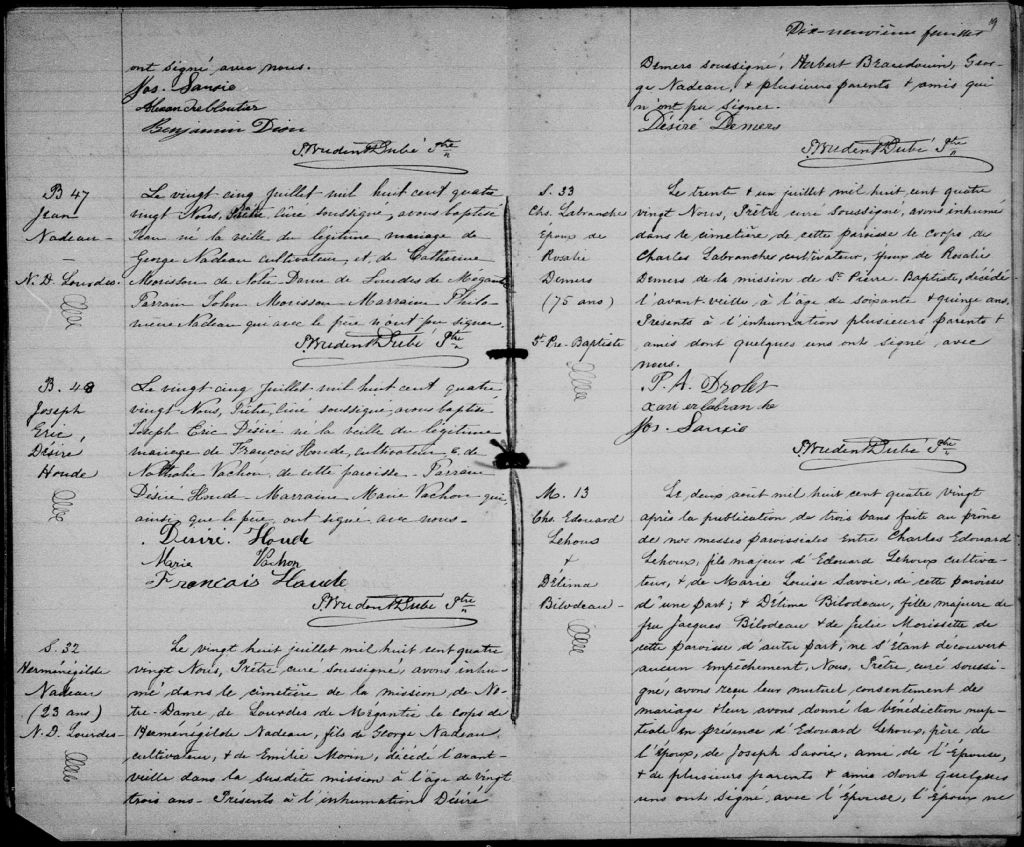 ont signé avec nous.
Jos. Savoie
Alexandre Cloutier
Benjamin Dion
P. Prudent Dubé Ptre
B 47
Jean
Nadeau
N. D. Lourdes.
Le vingt cinq juillet mil huit cent quatre
vingt Nous, Prêtre curé soussigné, avons baptisé
Jean né la veille du légitime mariage de
George Nadeau cultivateur et de Catherine
Morisson de Notre Dame de Lourdes de Mégantic
Parrain John Morisson - Marraine Philo-
mène Nadeau qui avec le père n'ont pu signer.
P. Prudent Dubé Ptre
B. 48
Joseph
Eric,
Désiré
Houde
Le vingt cinq juillet mil huit cent quatre
vingt Nous, Prêtre, curé soussigné, avons baptisé
Joseph Eric Désiré né la veille du légitime
mariage de François Houde, cultivateur & de
Nathalie Vachon, de cette paroisse - Parrain
Désiré Houde - Marraine Marie Vachon qui,
ainsi que le père, ont signé avec nous -
Desire. Houde
Marie Vachon
Francois Houde
P. Prudent Dubé Ptre
S. 32
Herménégilde
Nadeau
(23 ans)
N. D. Lourdes -
Le vingt huit juillet mil huit cent quatre
vingt Nous, Prêtre curé soussigné, avons inhu-
mé dans le cimetière de la mission de No-
tre-Dame de Lourdes de Mégantic le corps de
Herménégilde Nadeau, fils de George Nadeau,
cultivateur, & de Emilie Morin, décédé l'avant-
veille dans la susdite mission à l'âge de vingt
trois ans - Présents à l'inhumation Désiré
19
Dix-neuvième feuillet
Demers soussigné, Herbert Beaudouin, Geor-
ge Nadeau, & plusieurs parents & amis qui
n'ont pu signer.
Désiré Demers
P. Prudent Dubé Ptre
S. 33
Chs. Labranche
Epoux de
Rosalie
Demers
(75 ans)
St Pre. Baptiste
Le trente & un juillet mil huit cent quatre
vingt Nous, Prêtre curé soussigné, avons inhumé
dans le cimetière de cette paroisse le corps de
Charles Labranche cultivateur, époux de Rosalie
Demers de la mission de St. Pierre Baptiste, décédé
l'avant-veille à l'âge de soixante & quinze ans.
Présents à l'inhumation plusieurs parents &
amis dont quelques uns ont signé avec
nous.
P. A. Drolet
xavier labranche
Jos. Savoie
P. Prudent Dubé Ptre
M. 13
Chs. Edouard
Lehoux
&
Délima
Bilodeau -
Le deux août mil huit cent quatre vingt
après la publication de trois bans faite au prône
de nos messes paroissiales Entre Charles Edouard
Lehoux, fils majeur d'Edouard Lehoux cultiva-
teur, & de Marie Louise Savoie, de cette paroisse
d'une part; & Délima Bilodeau, fille majeure de
feu Jacques Bilodeau & de Julie Morissette de
cette paroisse d'autre part, ne s'Etant découvert
aucun Empêchement, Nous, Prêtre, curé soussi-
gné, avons reçu leur mutuel consentement de
mariage & leur avons donné la bénédiction nup-
tiale en présence d'Edouard Lehoux, père de
l'Epoux, de Joseph Savoie, ami de l'Epouse,
& de plusieurs parents & amis dont quelques
uns ont signé, avec l'Epouse, l'Epoux ne